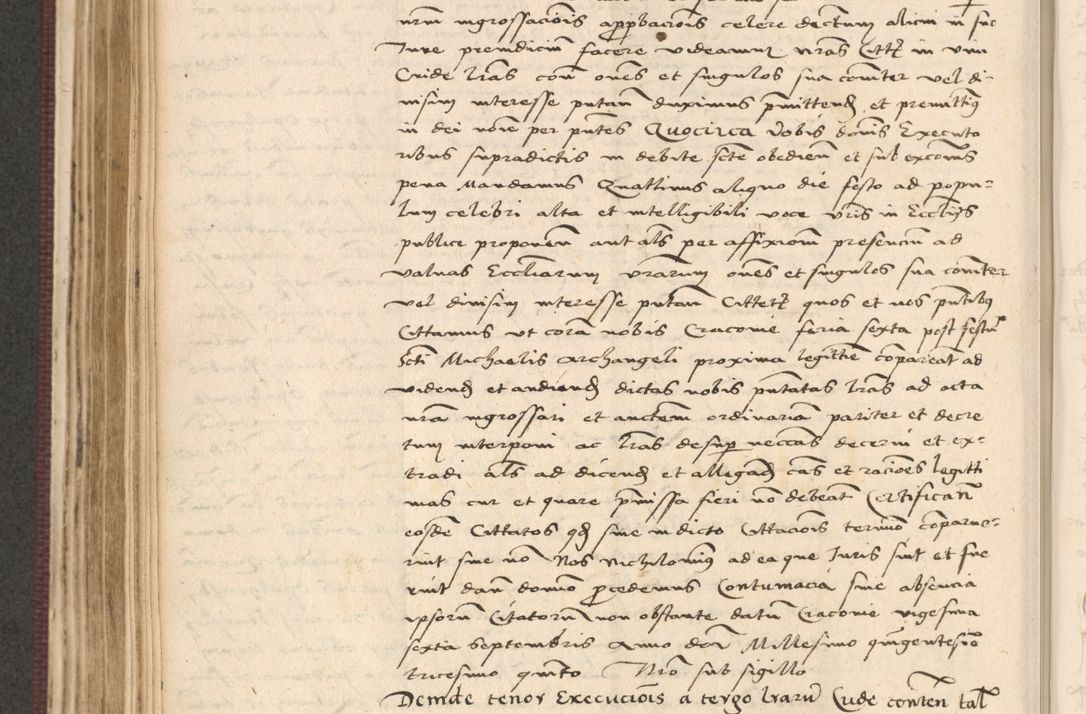 nrm ingrossaciois appbacois celere dectum alicui in suo
Iure preiudiciu facere videamur nras Citt in vim
Cride lras com oues et singulos sua comiter vel di-
uisim interesse putan duximus pmittend et premittimq
in dei noie per pntes Quocirca Vobis domis Executo
ribus supradictis in debite scte obedien et sub excois
pena Mandamus Quattinus aliquo die festo ad popu=
lum celebri alta et intelligibili voce vris in Ecclijs
publice proponen aut als per affixiom presenciu ad
valuas Eccliarum vrarum oues et singulos sua comiter
vel diuisim interesse putan Cittetj quos et nos pntibq
Cittamus vt cora nobis Cracouie feria sexta post festu
Scti Michaelis Archangeli proxima legittie compareat ad
videnđ et audienđ dictas nobis pntatas lras ad acta
nra ingrossari et auctem ordinariā pariter et decre
tum interponi ac lras desup neccas decerni et ex=
tradi als ad dicenđ et allegađ cās et racioēs legitti
mas cur et quare pmissa fieri nō debeāt Certificañ
eosdē Cittatos qđ siue in dicto Cittacois termō comparue-
rint siue nō Nos Nichilomiq ad ea que Iuris sint et fue
rint dāñ domō pcedemus Contumacia siue absencia
ipsorū Citatorū non obstante datū Cracouie vigesima
sexta Septembris Anno doi Millesimo quigentesio
tricesimo quīto Nrō sub sigillo
Deinde tenor Execucōis a tergo lrarū Cride conten tał